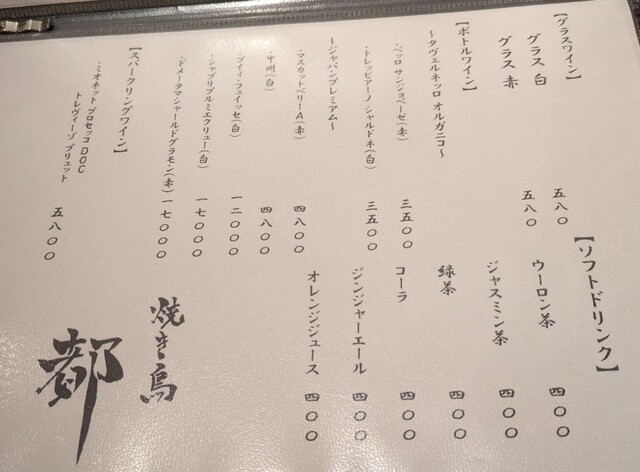 【グラスワイン】
グラス 白 五八〇
グラス 赤 五八〇
【ボトルワイン】
～タヴェルネッロ オルガニコ～
・ペッロ サンジョベーゼ(赤) 三五〇〇
・トレッビアーノ シャルドネ(白) 三五〇〇
～ジャパンプレミアム～
・マスカットベリーA(赤) 四八〇〇
・甲州(白) 四八〇〇
・プイィ・フュイッセ(白) 一二〇〇〇
・シャブリプルミエクリュー(白) 一七〇〇〇
・ドメータマシャールドグラモン(赤) 一七〇〇〇
【スパークリングワイン】
・ミオネット プロセッコ DOC
トレヴィーゾ ブリュット 五八〇〇
【ソフトドリンク】
ウーロン茶 四〇〇
ジャスミン茶 四〇〇
緑茶 四〇〇
コーラ 四〇〇
ジンジャーエール 四〇〇
オレンジジュース 四〇〇
焼き鳥
都